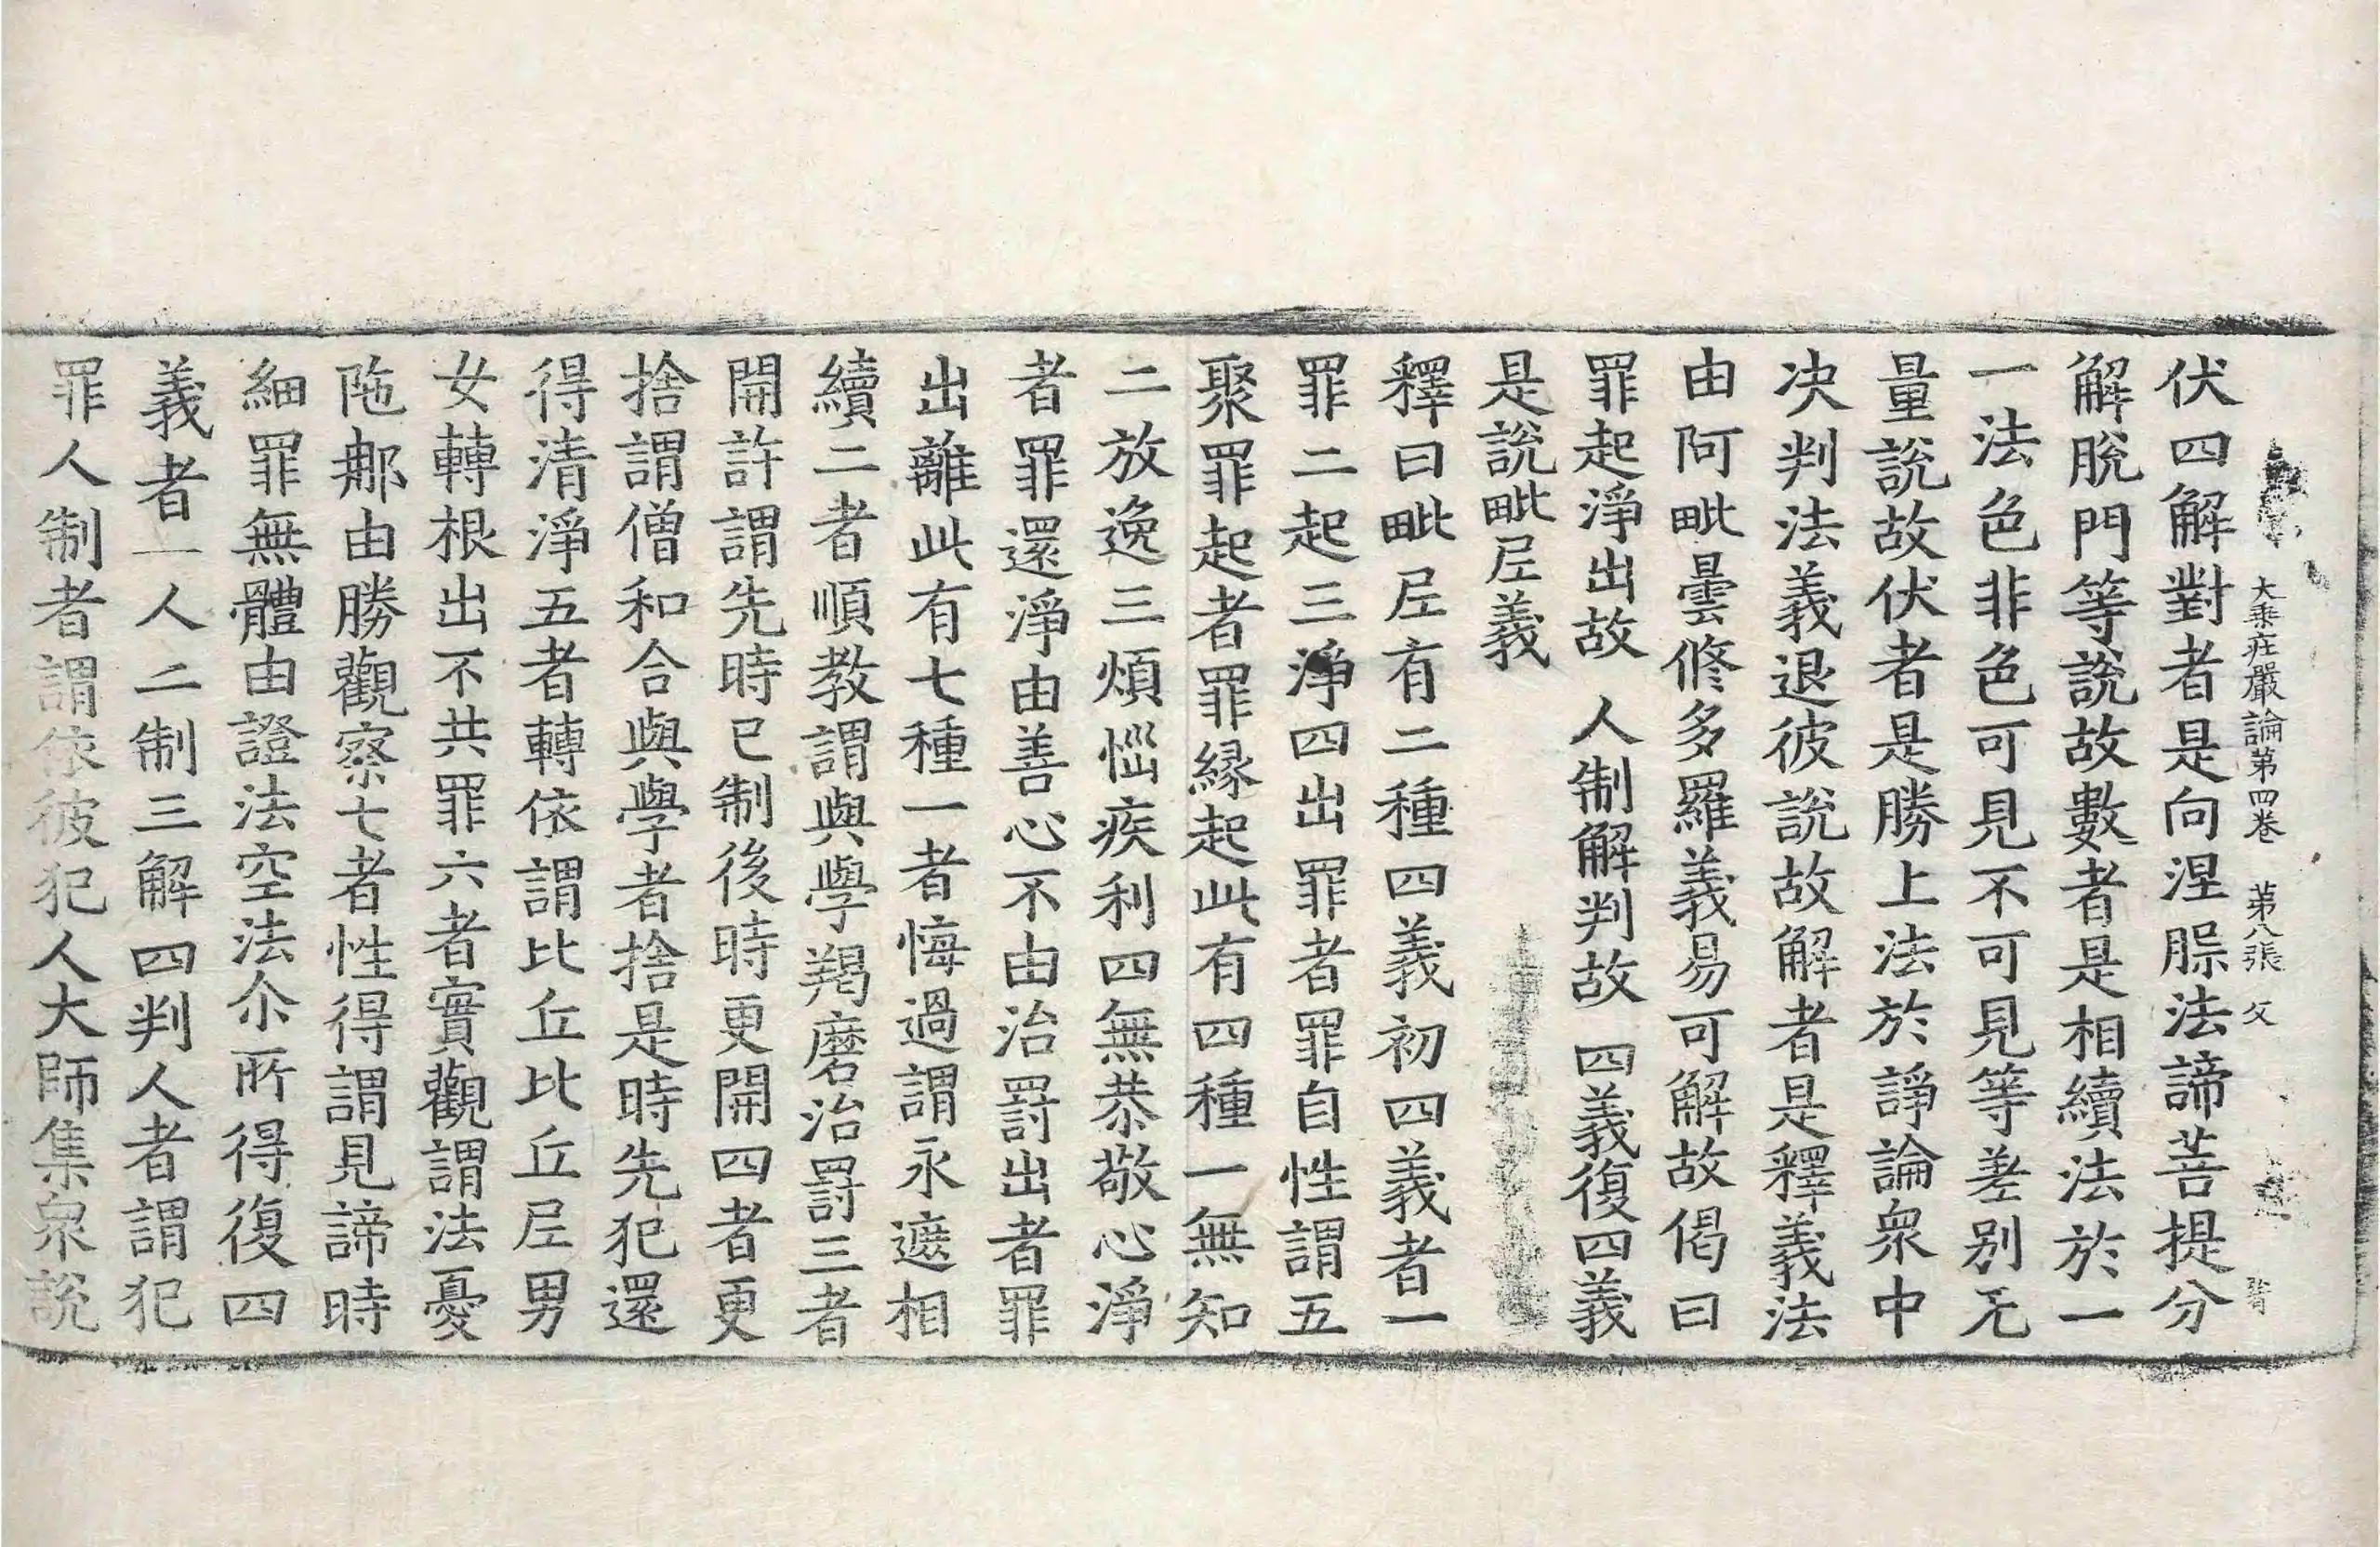 大乗莊嚴論第四卷 第八張 父
伏四解對者是向涅槃法諦菩提分
解脫門等說故數者是相續法於一
一法色非色可見不可見等差別无
量說故伏者是勝上法於諍論衆中
决判法義退彼說故解者是釋義法
由阿毗曇修多羅義易可解故偈曰
罪起淨出故 人制解判故 四義復四義
是說毗尼義
釋曰毗尼有二種四義初四義者一
罪二起三淨四出罪者罪自性謂五
聚罪起者罪縁起此有四種一無知
二放逸三煩惱疾利四無恭敬心淨
者罪還淨由善心不由治罰出者罪
出離此有七種一者悔過謂永遮相
續二者順教謂與學羯磨治罰三者
開許謂先時已制後時更開四者更
捨謂僧和合與學者捨是時先犯還
得清淨五者轉依謂比丘比丘尼男
女轉根出不共罪六者實觀謂法憂
陁那由勝觀察七者性得謂見諦時
細罪無體由證法空法尒所得復四
義者一人二制三解四判人者謂犯
罪人制者謂依彼犯人大師集衆說